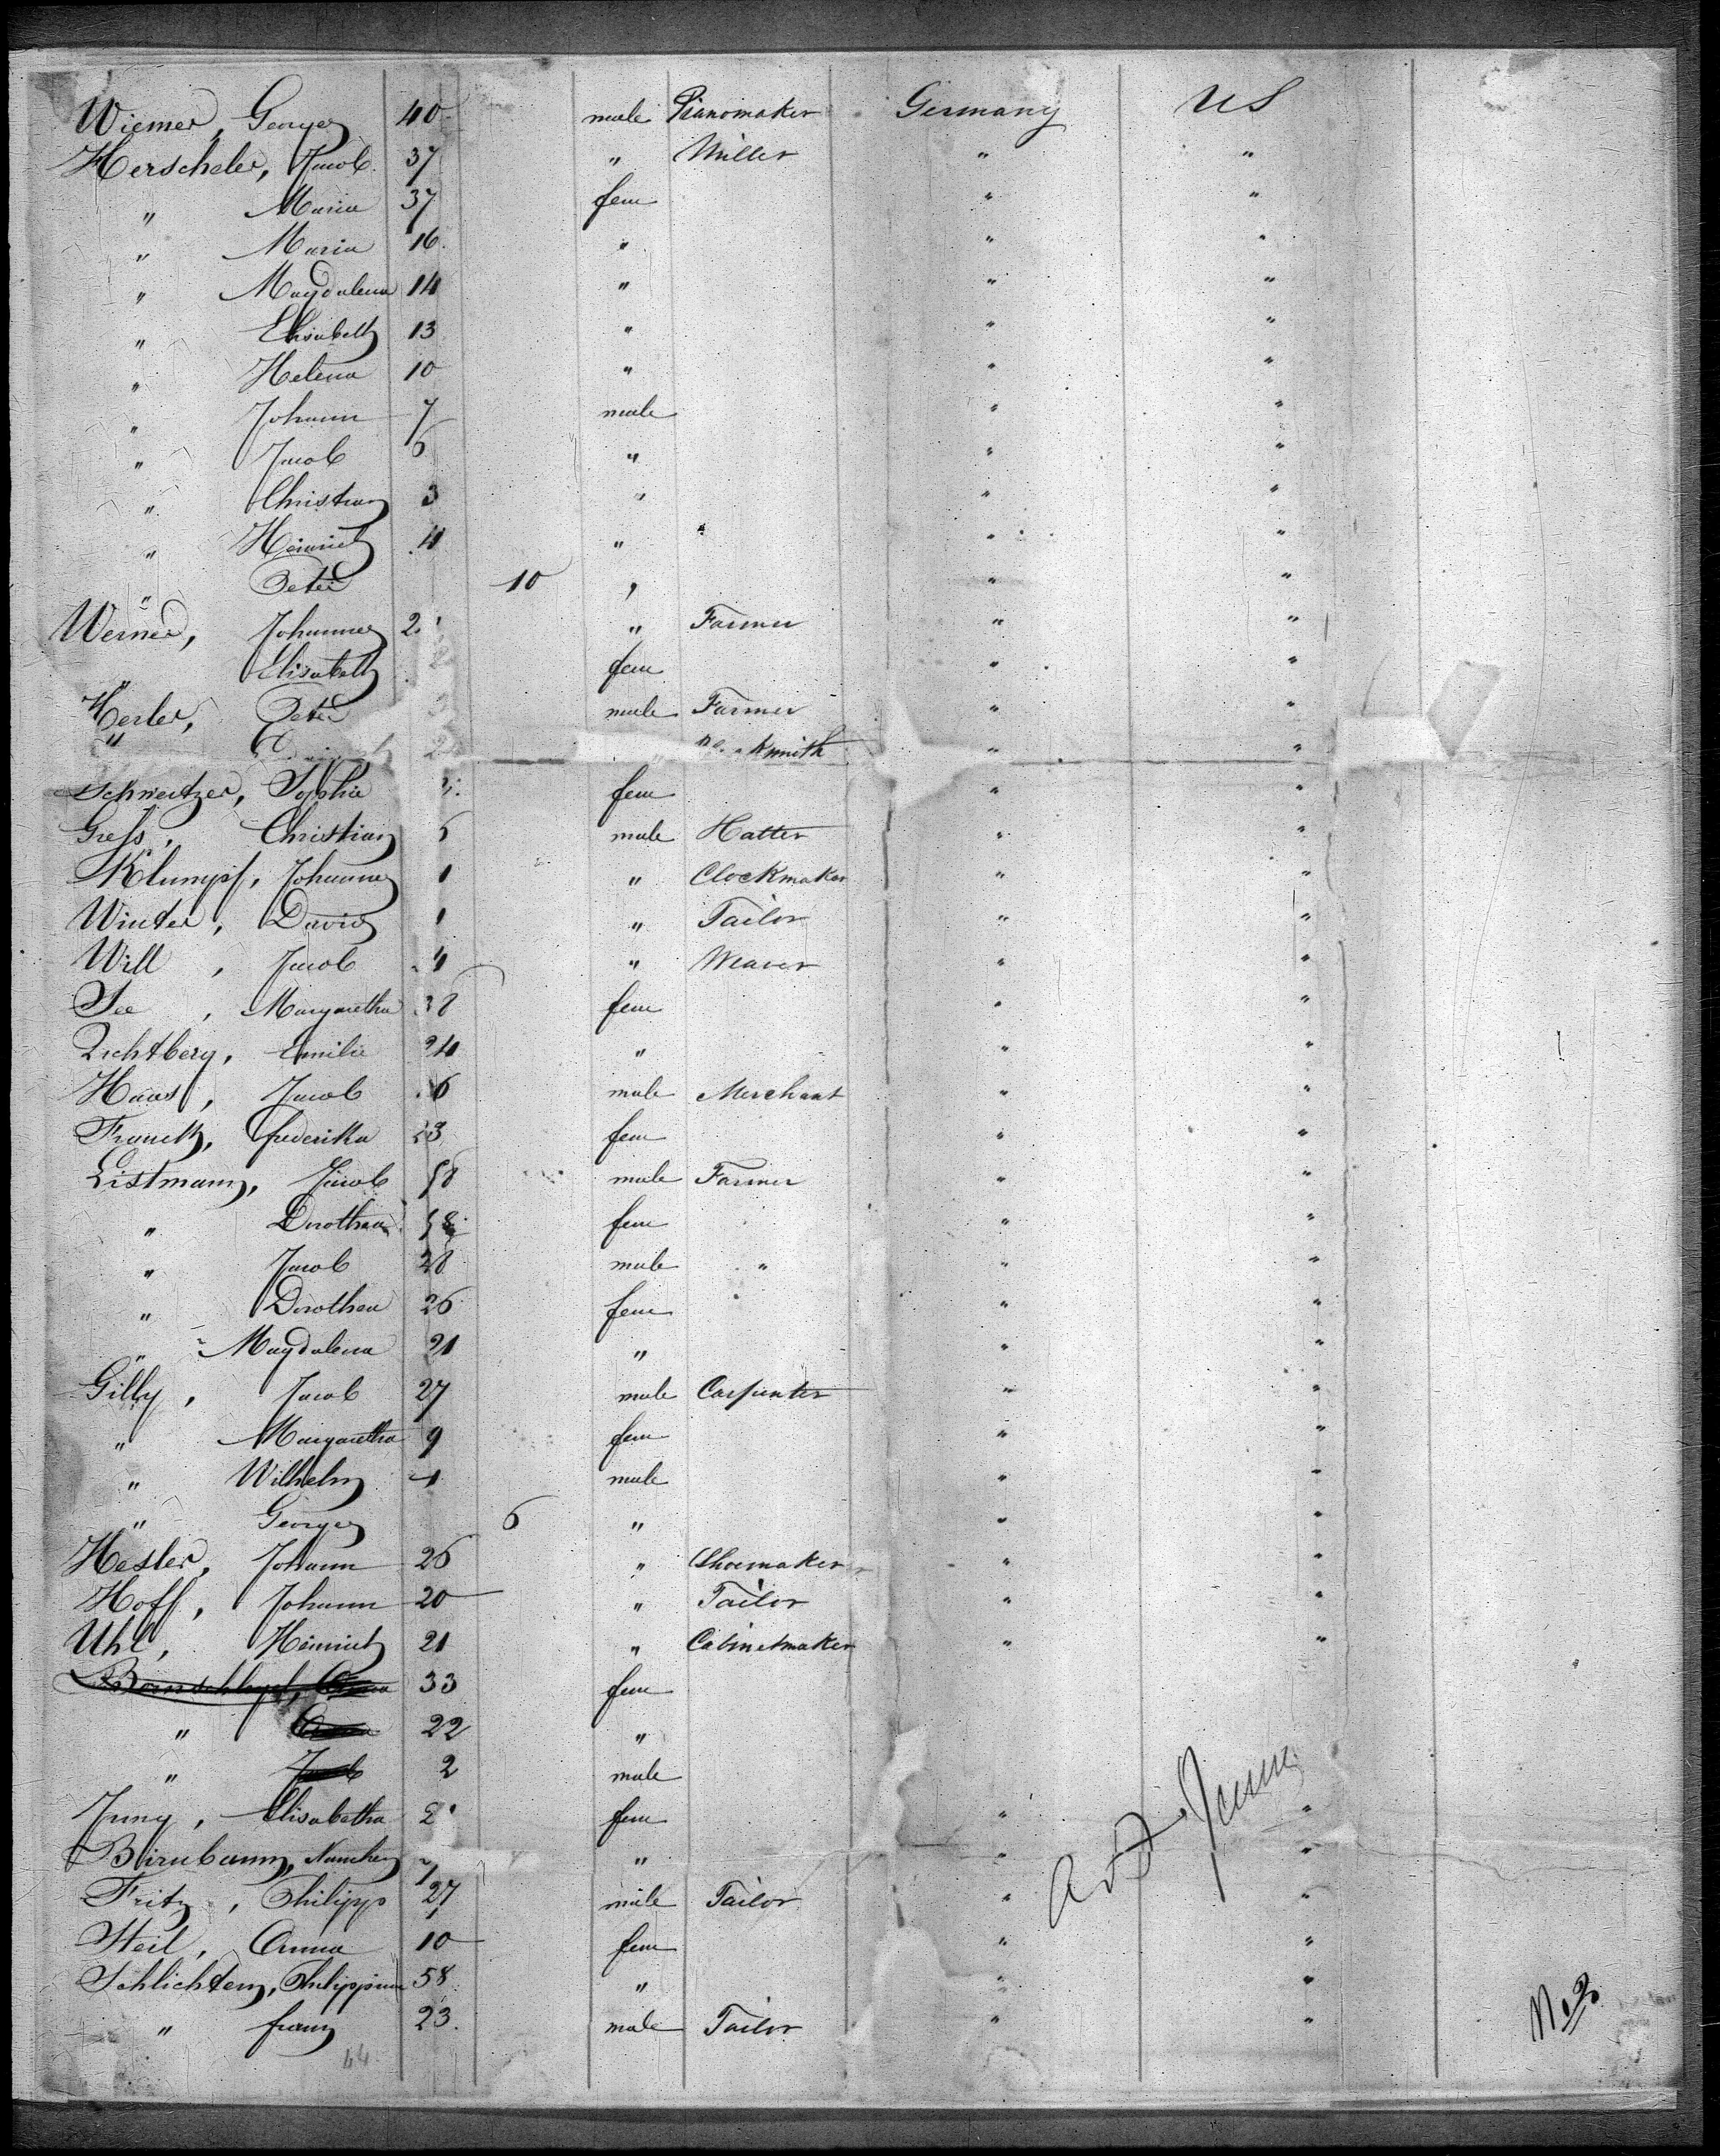 Wiemer, George 40 male Pianomaker Germany US
Herscheler, Jacob 37 " Miller " "
" Maria 37 fem " "
" Maria 16 " " "
" Magdalena 14 " " "
" Elisabeth 13 " " "
" Helena 10 " " "
" Johann 7 male " "
" Jacob 6 " " "
" Christian 3 " " "
" Heinrich 4 " " "
" Peter 10 " " "
Werner, Johannes " Farmer " "
" Elisabeth fem " "
Peter male Farmer " "
" " "
Schweitzer, Sophie fem " "
Gress, Christian male Hatter " "
Klumpf, Johannes " Clockmaker " "
Winter, David " Tailor " "
Will, Jacob " Weaver " "
See, Margaretha 38 fem " "
Emilie 24 " " "
Haas, Jacob male Merchant " "
Franck, Frederika 23 fem " "
Listmann, Jacob 58 male Farmer " "
" Dorothea fem " "
" Jacob 28 male " " "
" Dorothea 26 fem " "
" Magdalena 21 " " "
Gilly, Jacob 27 male Carpenter " "
" Margaretha 9 fem " "
" Wilhelm male " "
" George 6 " " "
Hesler, Johann 26 " Shoemaker " "
Hoff, Johann 20 " Tailor " "
Uhl, Heinrich 21 " Cabinetmaker " "
33 fem
" 22 "
" Jacob 2 male
Jung, Elisabetha fem " "
Birnbaum, " " "
Fritz, Philipp 27 male Tailor " "
Heil, Anna 10 fem " "
Schlichtern, Philippine 58 " " "
" Franz 23 male Tailor " "
44
No 2